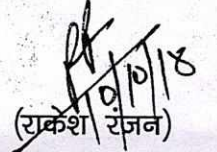 10/10/18
(राकेश रंजन)